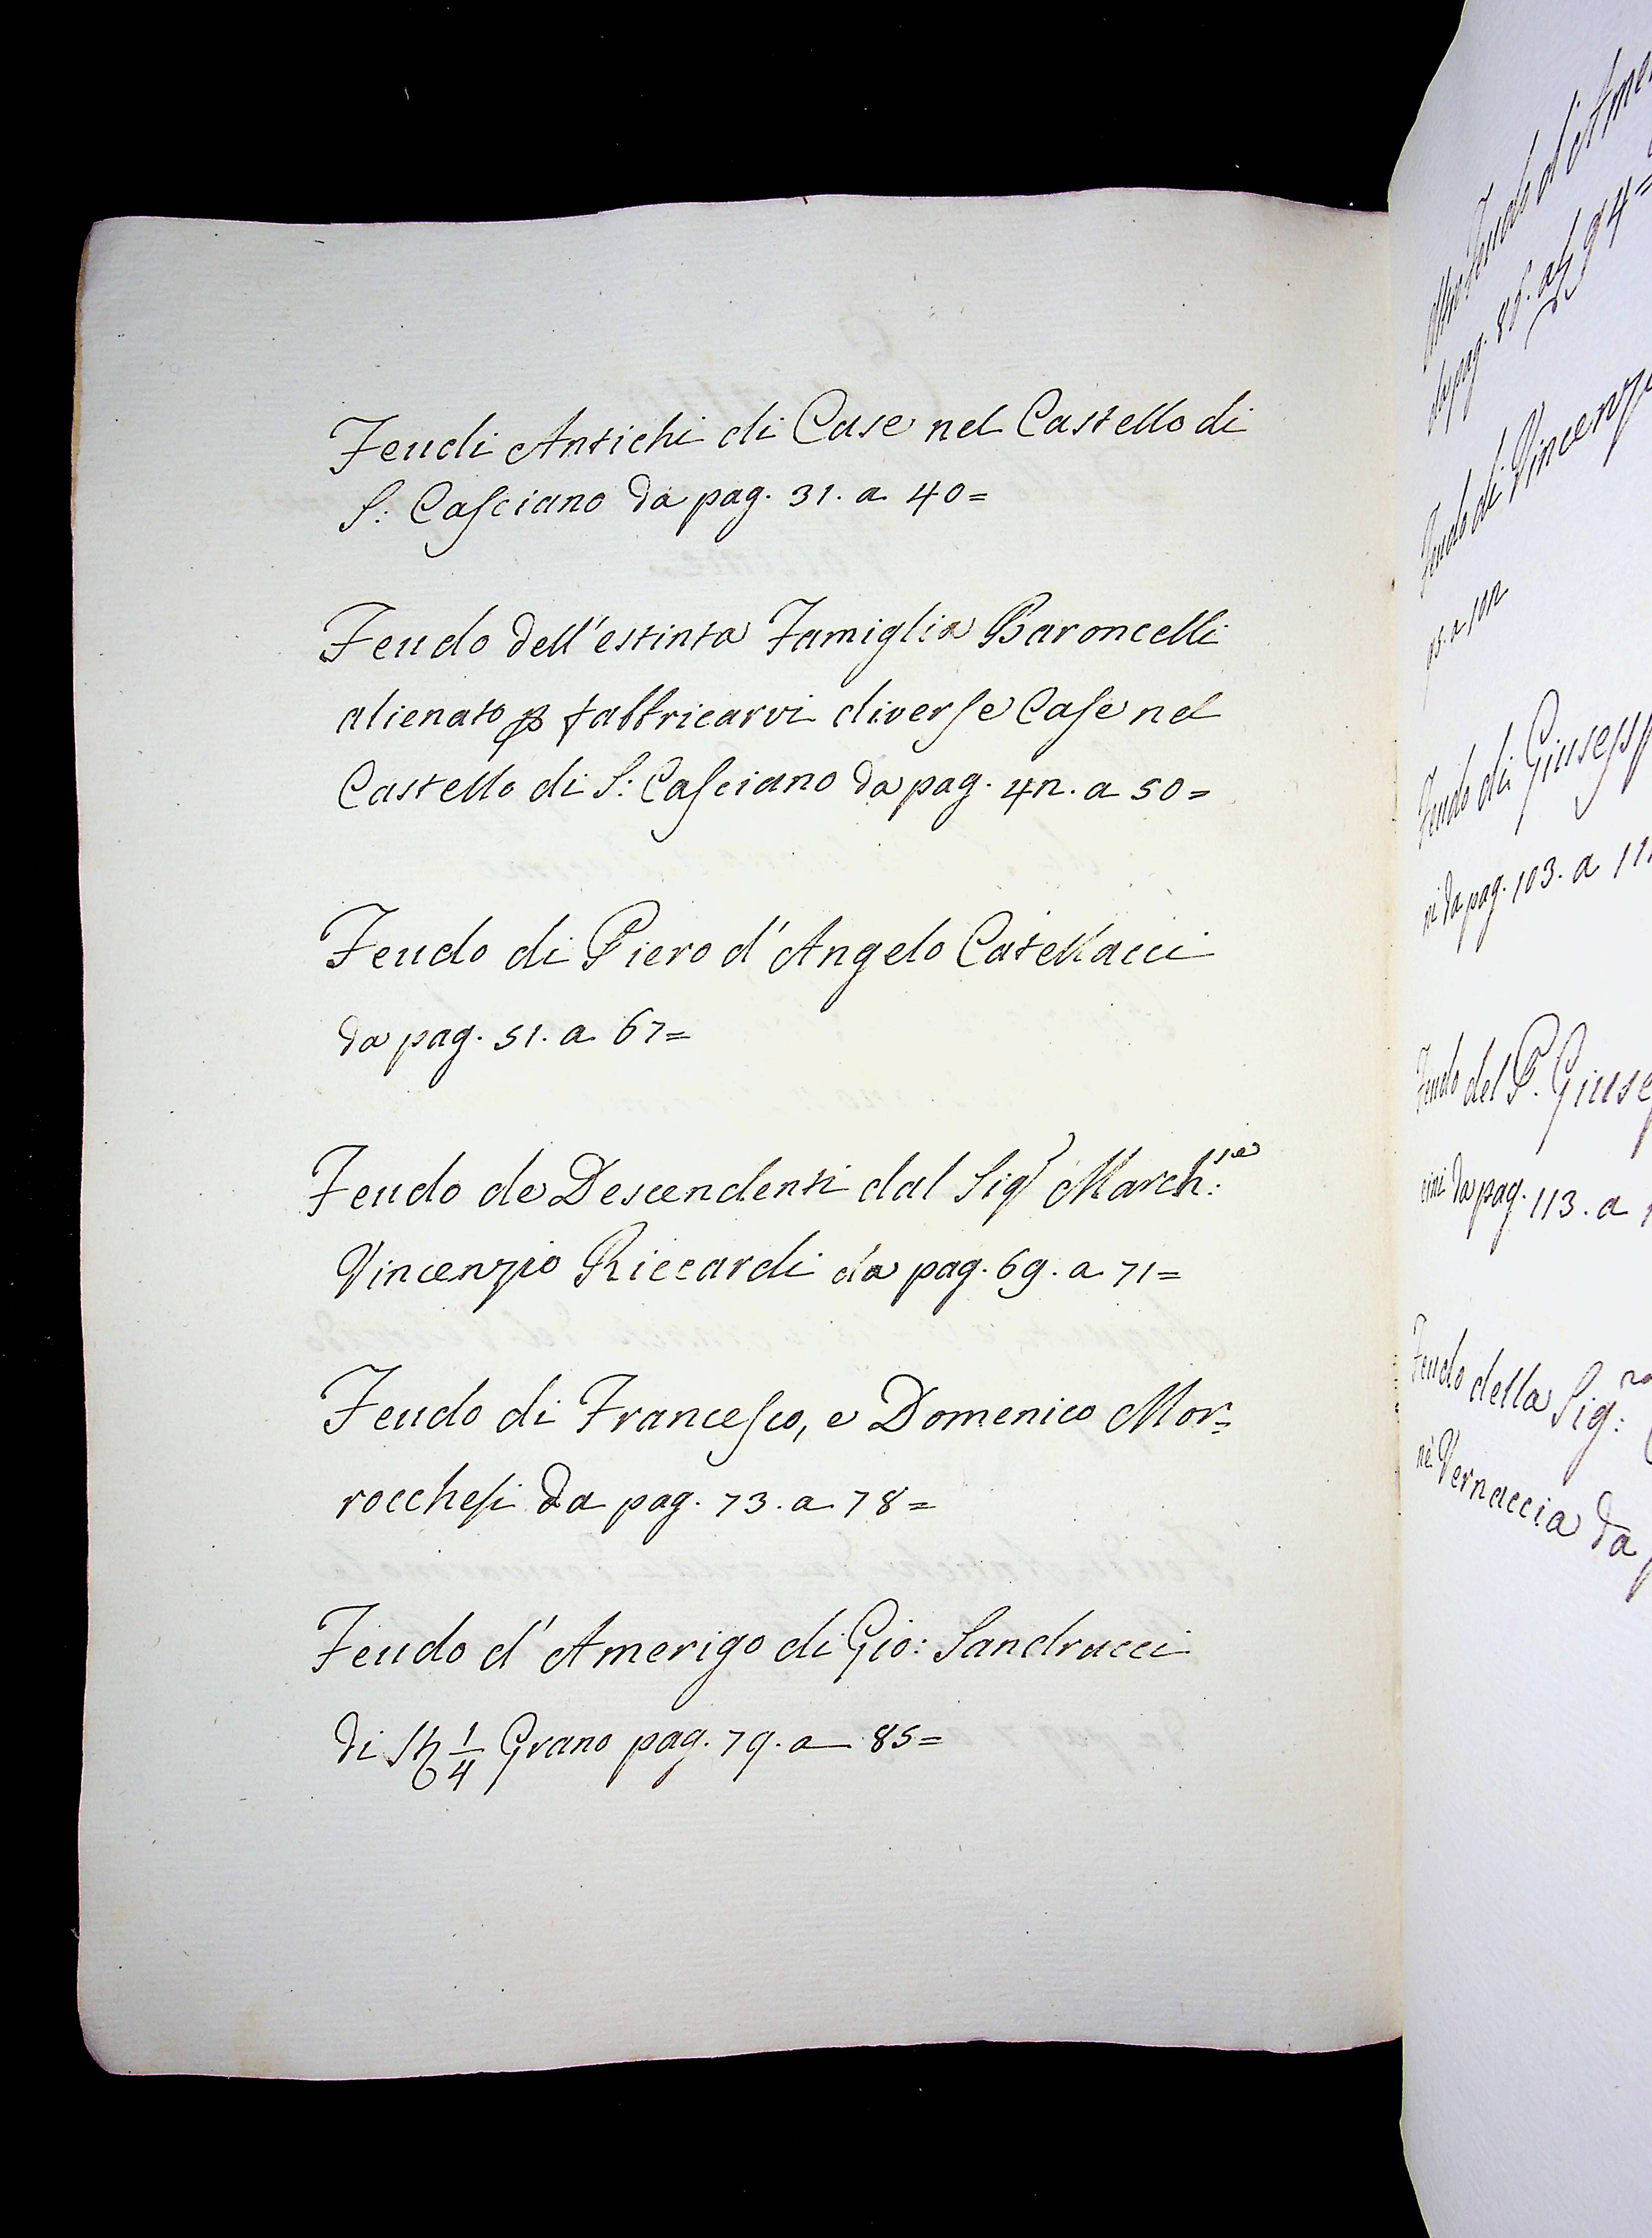 Feudi Antichi di Case nel Castello di
S: Casciano da pag. 31. a 40=
Feudo dell'estinta Famiglia Baroncelli
alienato p fabbricarvi diverse Case nel
Castello di S: Casciano da pag. 42. a 50=
Feudo di Piero d'Angelo Catellacci
da pag. 51. a 67=
Feudo de Descendenti dal Sigr March:se
Vincenzio Riccardi da pag. 69. a 71=
Feudo di Francesco, e Domenico Mor=
rocchesi da pag. 73. a 78=
Feudo d'Amerigo di Gio: Sandrucci
di 1/4 Grano pag. 79. a 85=
Altro Feudo d'Ame
da pag. 94=
Feudo di Vincenzi
95. a 102
Feudo di Giusepp
ni da pag. 103. a 11
Feudo del P. Giuse
cini da pag. 113. a
Feudo della Sig:ra
nè Vernaccia da